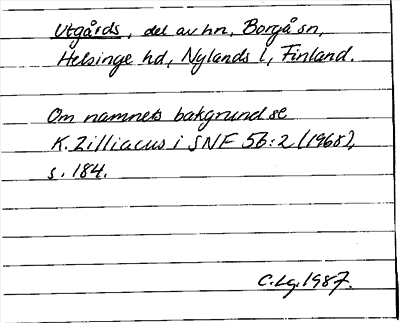 Utgårds, del av hn, Borgå sn,
Helsinge hd, Nylands l, Finland.
Om namnets bakgrund se
K. Zilliacus i SNF 56:2 (1968),
s. 184.
C.Lg. 1987.